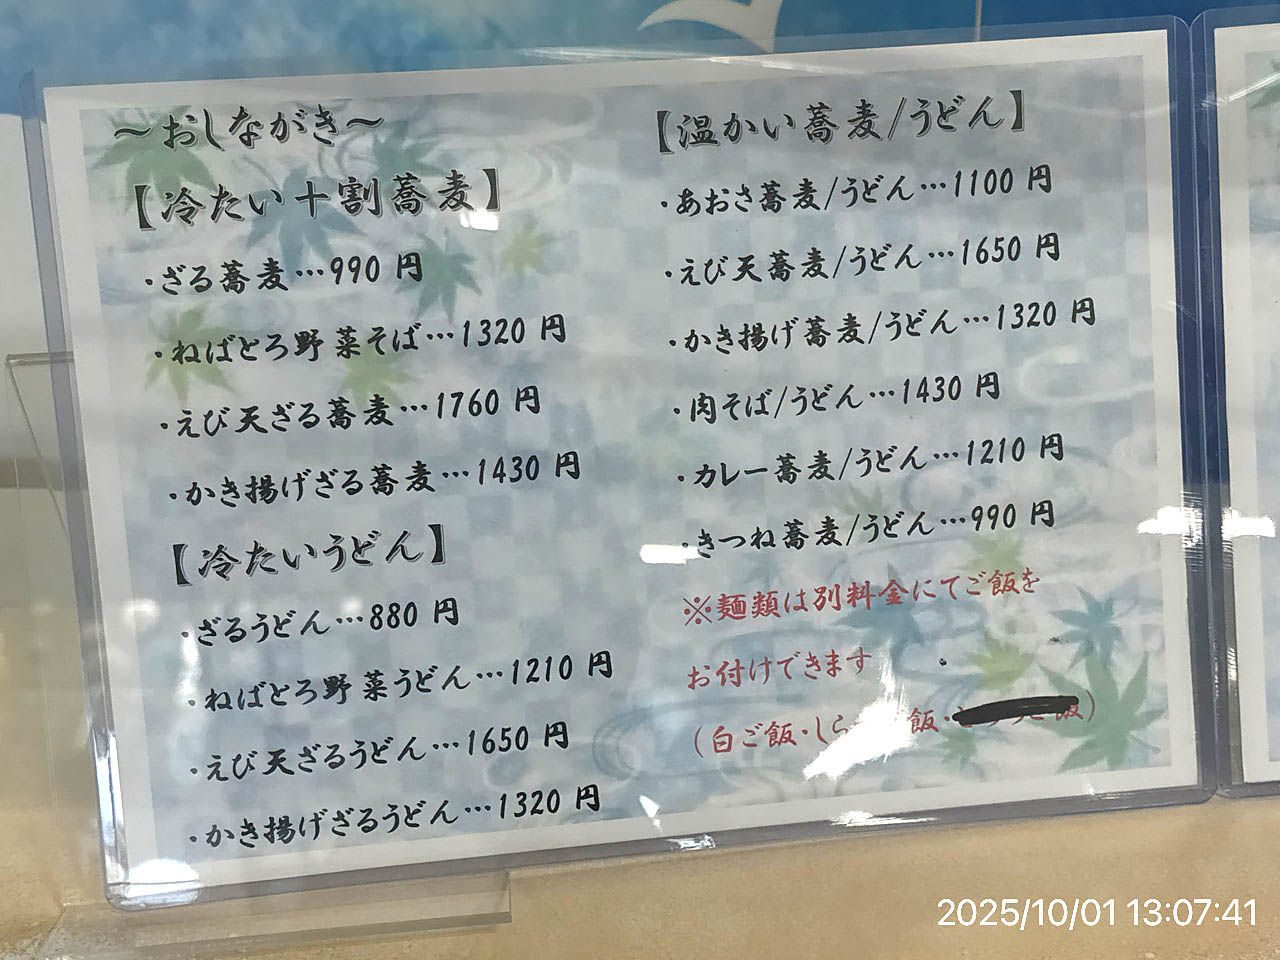 ～おしながき～
【冷たい十割蕎麦】
・ざる蕎麦…990 円
・ねばとろ野菜そば…1320 円
・えび天ざる蕎麦…1760 円
・かき揚げざる蕎麦…1430 円
【冷たいうどん】
・ざるうどん…880 円
・ねばとろ野菜うどん…1210 円
・えび天ざるうどん…1650 円
・かき揚げざるうどん…1320 円
【温かい蕎麦/うどん】
・あおさ蕎麦/うどん…1100 円
・えび天蕎麦/うどん…1650 円
・かき揚げ蕎麦/うどん…1320 円
・肉そば/うどん…1430 円
・カレー蕎麦/うどん…1210 円
・きつね蕎麦/うどん…990 円
※麺類は別料金にてご飯を
お付けできます
（白ご飯・しら 飯・ 飯）
2025/10/01 13:07:41